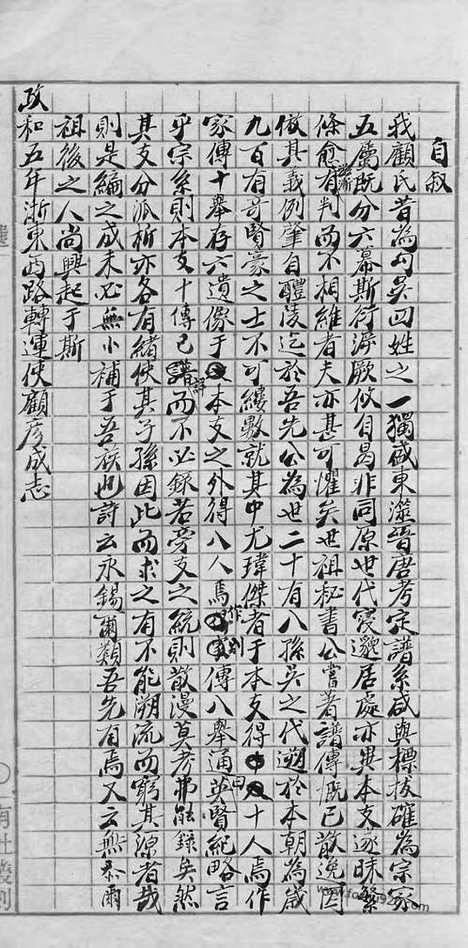 自叙
我顧氏昔為勾吳四姓之一獨盛東澨晉唐考定譜系咸與標拔確為宗家
五屬既分六幕斯衍泝厥攸自曷非同原世代寖邈居處亦異本支逐昧繁
條愈有判而不相維者夫亦甚可懼矣世祖秘書公嘗著譜傳慨已散逸因
倣其義例肇自醴陵迄於吾先公為世二十有八孫吳之代遡於本朝為歲
九百有奇賢豪之士不可縷數就其中尤瑋傑者于本支得十人焉作
家傳十舉存六遺像于本支之外得八人焉作別傳八舉通甲賢紀略言
乎宗系則本支十傳已譜詳而不必録若旁支之統則散漫莫考弗能録矣然
其支分派析亦各有緒使其子孫因此而求之有不能溯流而窮其源者哉
則是編之成未必無小補于吾族也詩云永錫爾類吾先有焉又云無忝爾
祖後之人尚興起于斯
政和五年浙東西路轉運使顧彥成志